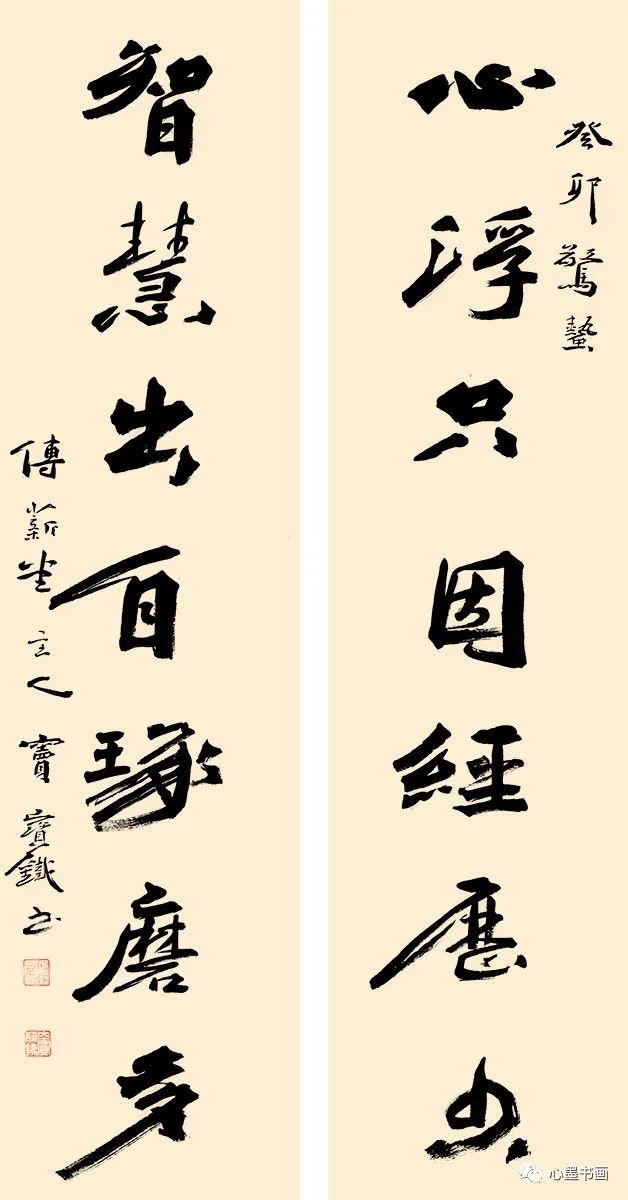 癸卯驚蟄
心浮只因經歷少
智慧出自琢磨
傳薪堂主人竇寶鐵书
心墨书画